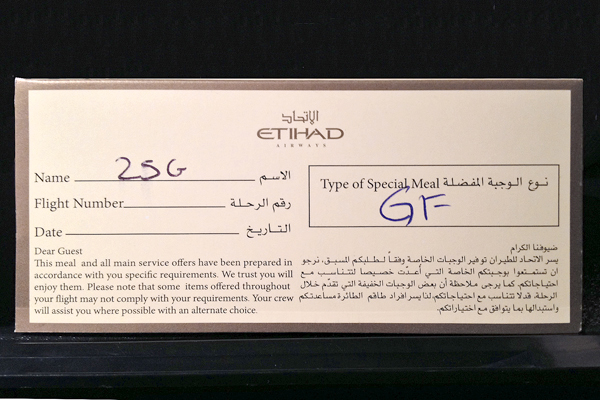 الإتحاد
ETIHAD
AIRWAYS
Name 25G الاسم
Flight Number رقم الرحلة
Date التاريخ
Type of Special Meal نوع الوجبة المفضلة
GF
Dear Guest
This meal and all main service offers have been prepared in
accordance with you specific requirements. We trust you will
enjoy them. Please note that some items offered throughout
your flight may not comply with your requirements. Your crew
will assist you where possible with an alternate choice.
ضيوفنا الكرام
يسر الاتحاد للطيران توفير الوجبات الخاصة وفقاً لطلبكم المسبق، نرجو
ان تستمتعوا بوجبتكم الخاصة التي أعدّت خصيصا لتتناسب مع
احتياجاتكم. كما يرجى ملاحظة أن بعض الوجبات الخفيفة التي تقدّم خلال
الرحلة، قد لا تتناسب مع احتياجاتكم، لذا يسر افراد طاقم الطائرة مساعدتكم
واستبدالها بما يتوافق مع اختياراتكم.